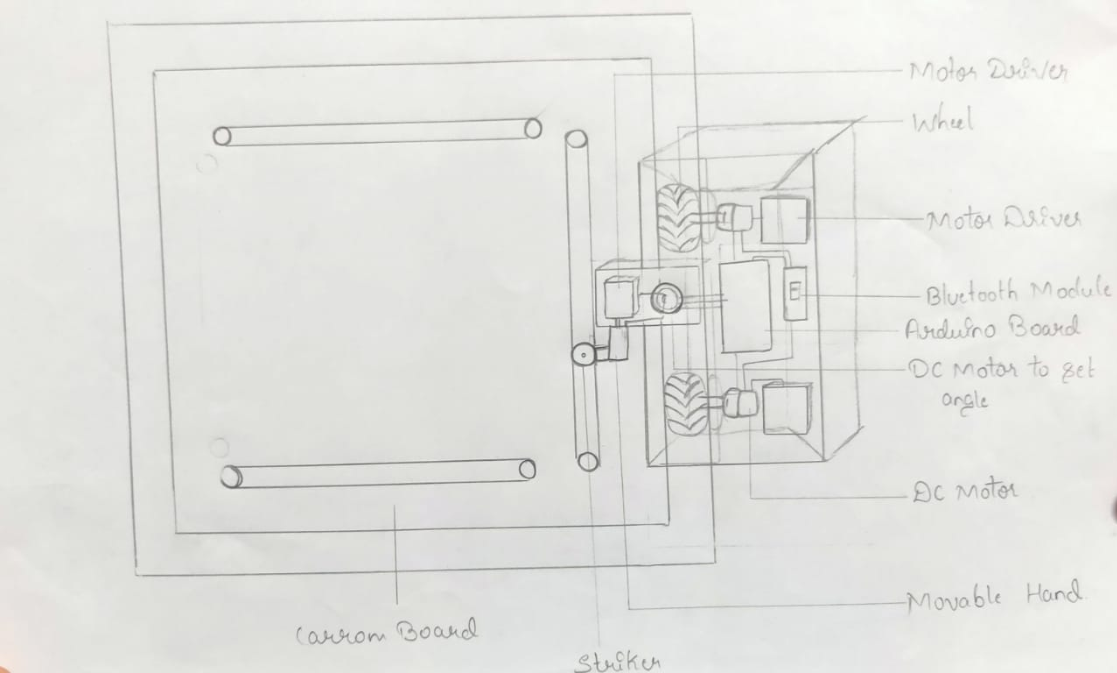 Motor Driver
Wheel
Motor Driver
Bluetooth Module
Arduino Board
DC Motor to set
angle
DC Motor
Movable Hand
Carrom Board
Striker